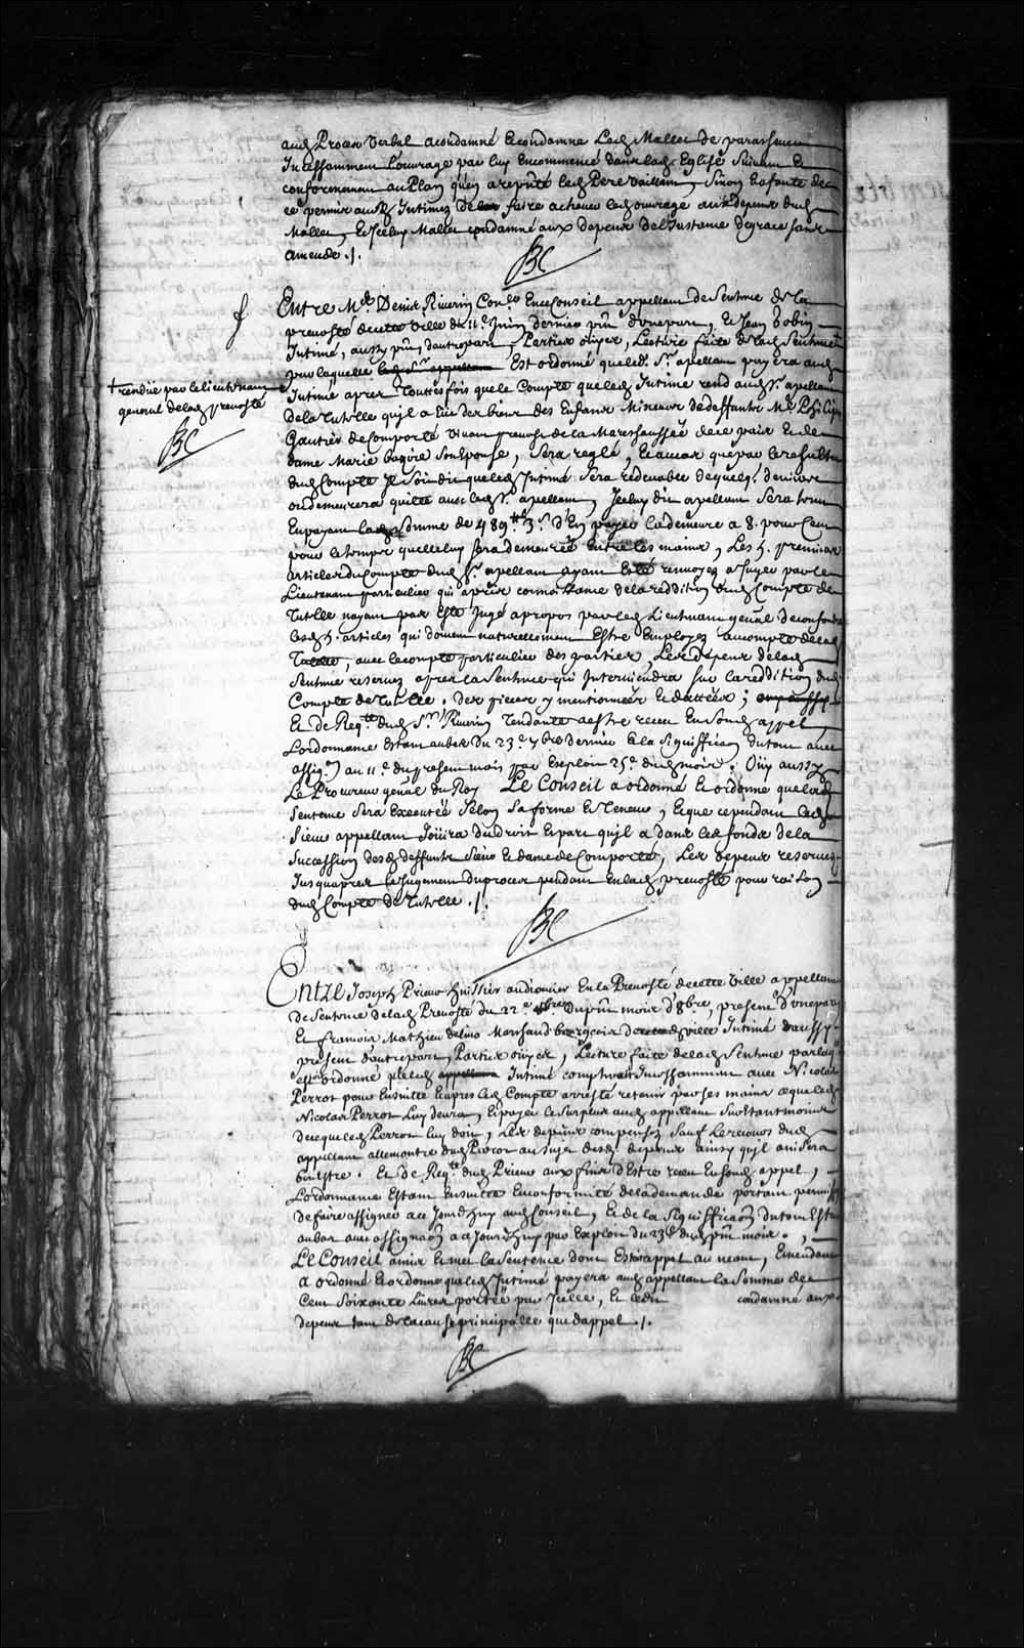 aud Procex Verbal a condamné & condamne led Mallet de parachever
Incessamment l'ouvrage par luy Encommencé dans lad Eglise Suivant &
conformement au Plan qu'en a led Pere Vaillant, Sinon & a faute de
ce permis ausd Intimez de faire achever led ouvrage aux depens dud
Mallet, & Iceluy Mallet condamné aux depens de l'Instance de grace sans
amende ./.
Entre Me Denis Riverin Conler En ce Conseil appellant de Sentence de la
prevosté de cette ville du 11e Juin dernier pnt d'une part, & Jean Gobin
Intimé, aussy pnt, d'autre part, Parties ouyes, Lecture faite de lad Sentence
par laquelle Est ordonné que led. Sr. apellant payera aud
† rendüe par le lieutenant
general de lad prevosté
Intimé apres Touttes fois que le Compte que led Intimé rend aud Sr. apellant
de la Tutelle qu'il a Eüe des biens des Enfans Mineurs de deffunts Me Philippe
Gautier de Comporté vivant prevost de la Mareshaussée de ce païs & de
dame Marie bazire son Epouse, Sera reglé, & au cas que par le resultat
dud Compte Il Soit dit que led Intimé Sera redevable de quelq. deniers
ou demeurera quitte avec led Sr. apellant, Iceluy dit apellant Sera tenu
En payant lad Somme de 489tt 3s d'En payer la demeure a 8. pour Cent
pour le temps qu'elle luy sera demeurée Entre les mains, Les 5. premiers
articles du Compte dud Sr. apellant ayant Esté renvoyez a Juger par le
Lieutenant particulier qui a pris connoissance de la reddition dud Compte de
Tutelle n'ayant pas Esté Jugé a propos par led Lieutenant genal de confondre
lesd 5. articles qui doivent naturellement Estre Employez au compte de lad
Tutelle, avec le compte particulier des parties, Les depens de lad
Sentence reservez apres la Sentence qui Interviendra sur la reddition dud
Compte de Tutelle. des pieces y mentionnées & dattées;
& De Reqte dud Sr. Riverin Tendante a estre receu En Sond appel
L'ordonnance Estant au bas du 23e 7bre dernier & la Signiffication du tout avec
assigon au 11e du present mois par Exploit 25e dud mois. Oüy aussy
Le Procureur genal du Roy Le Conseil a ordonné & ordonne que lad
Sentence Sera Executée Selon Sa forme & Teneur, & que cependant led
Sieur appellant Joüira du droit & part qu'il a dans les fonds de la
Succession desd deffunts Sieur & dame de Comporté, Les depens reservez
Jusqu'apres le Jugement du procez pendant En lad prevosté pour raison
dud Compte de Tutelle ./.
Entre Joseph Prieur huissier audiancier En la Prevosté de cette ville appellant
de Sentence de lad Prevosté du 22e du pnt mois d'8bre, present d'une part
& francois Mathieu Marchand bourgeois de ville Intimé aussy
present d'autre part, Parties ouyes, Lecture faite de lad Sentence par laqle
est ordonné que led Intimé comptera Incessamment avec Nicolas
Perrot pour Ensuitte & apres led Compte arresté retenir par ses mains ce que led
Nicolas Perrot luy devra, & payer le Surplus aud appellant Sur & tant moins
de ce que led Perrot luy doit, Les depens compensez Sauf Le recours dud
appellant allencontre dud Perrot au Sujet desd depens ainsy qu'il avisera
bon Estre. & De Reqte dud Prieur aux fins d'Estre receu En sond appel,
L'ordonnance Estant Ensuitte En conformité de la demande portant permission
de faire assigner a ce Jourd'huy aud Conseil, & de la Signiffication du tout Estant
au bas avec assignaon a ce Jourd'huy par Exploit du 23e dud pnt mois.,
Le Conseil a mis & met la Sentence dont Est appel au neant, Emendant
a ordonné & ordonne que led Intimé payera aud appellant la Somme de
Cent Soixante Livres portée par Icelle, & led condamne aux
depens tant de la cause principalle que d'appel ./.